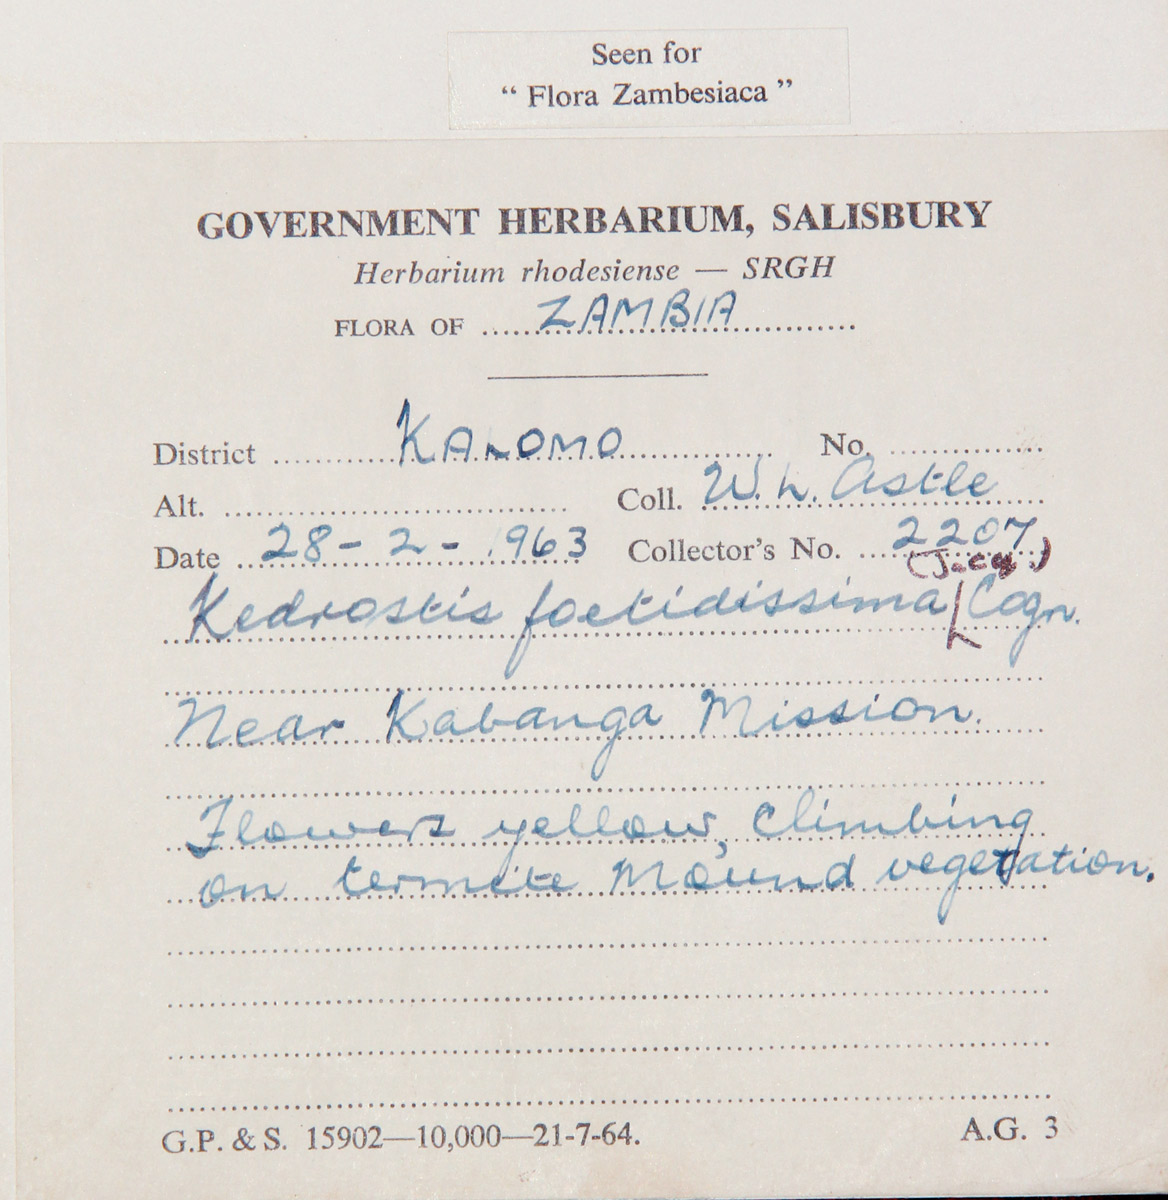 Seen for
“ Flora Zambesiaca ”
GOVERNMENT HERBARIUM, SALISBURY
Herbarium rhodesiense — SRGH
FLORA OF ZAMBIA
District KALOMO No.
Alt. Coll. W. L. Astle
Date 28-2-1963 Collector's No. 2207
(Jacq.)
Kedrostis foetidissima Cogn.
Near Kabanga Mission.
Flowers yellow, climbing
on termite mound vegetation.
G.P. & S. 15902—10,000—21-7-64. A.G. 3